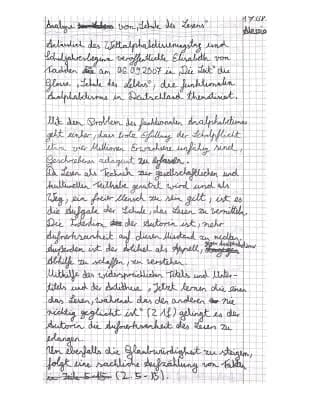 Analyse von „Schule des Lesens"
Anlässlich des Weltalphabetisierungstag und
Schuljahresbeginn veröffentlichte Elisabeth von
Thadden am 06.09.2007 in „Die Zeit" die
Glosse „Schule des Lebens", die funktionalen
Analphabetismus in Deutschland thematisiert.
Mit dem Problem des funktionalen Analphabetismus
geht einher, dass trotz Erfüllung der Schulpflicht
etwa vier Millionen Erwachsene unfähig sind,
Geschriebenes adäquat zu erfassen.
Da Lesen als Technik zur gesellschaftlichen und
kulturellen Teilhabe genutzt wird und als
Weg, ein freier Mensch zu sein gilt, ist es
die Aufgabe der Schule, das Lesen zu vermitteln.
Die Intention der Autorin ist, mehr
Aufmerksamkeit auf diesen Missstand zu richten.
Außerdem ist der Artikel als Appell,
Abhilfe zu schaffen, zu verstehen.
Mithilfe des widersprüchlichen Titels und Unter-
titels und der Antithese „Jetzt lernen die einen
das Lesen, während das den anderen nie
richtig geglückt ist" (Z 1f) gelingt es der
Autorin die Aufmerksamkeit des Lesers zu
erlangen.
Um ebenfalls die Glaubwürdigkeit zu steigern,
folgt eine sachliche Aufzählung von Fakten
(Z. 5-15).